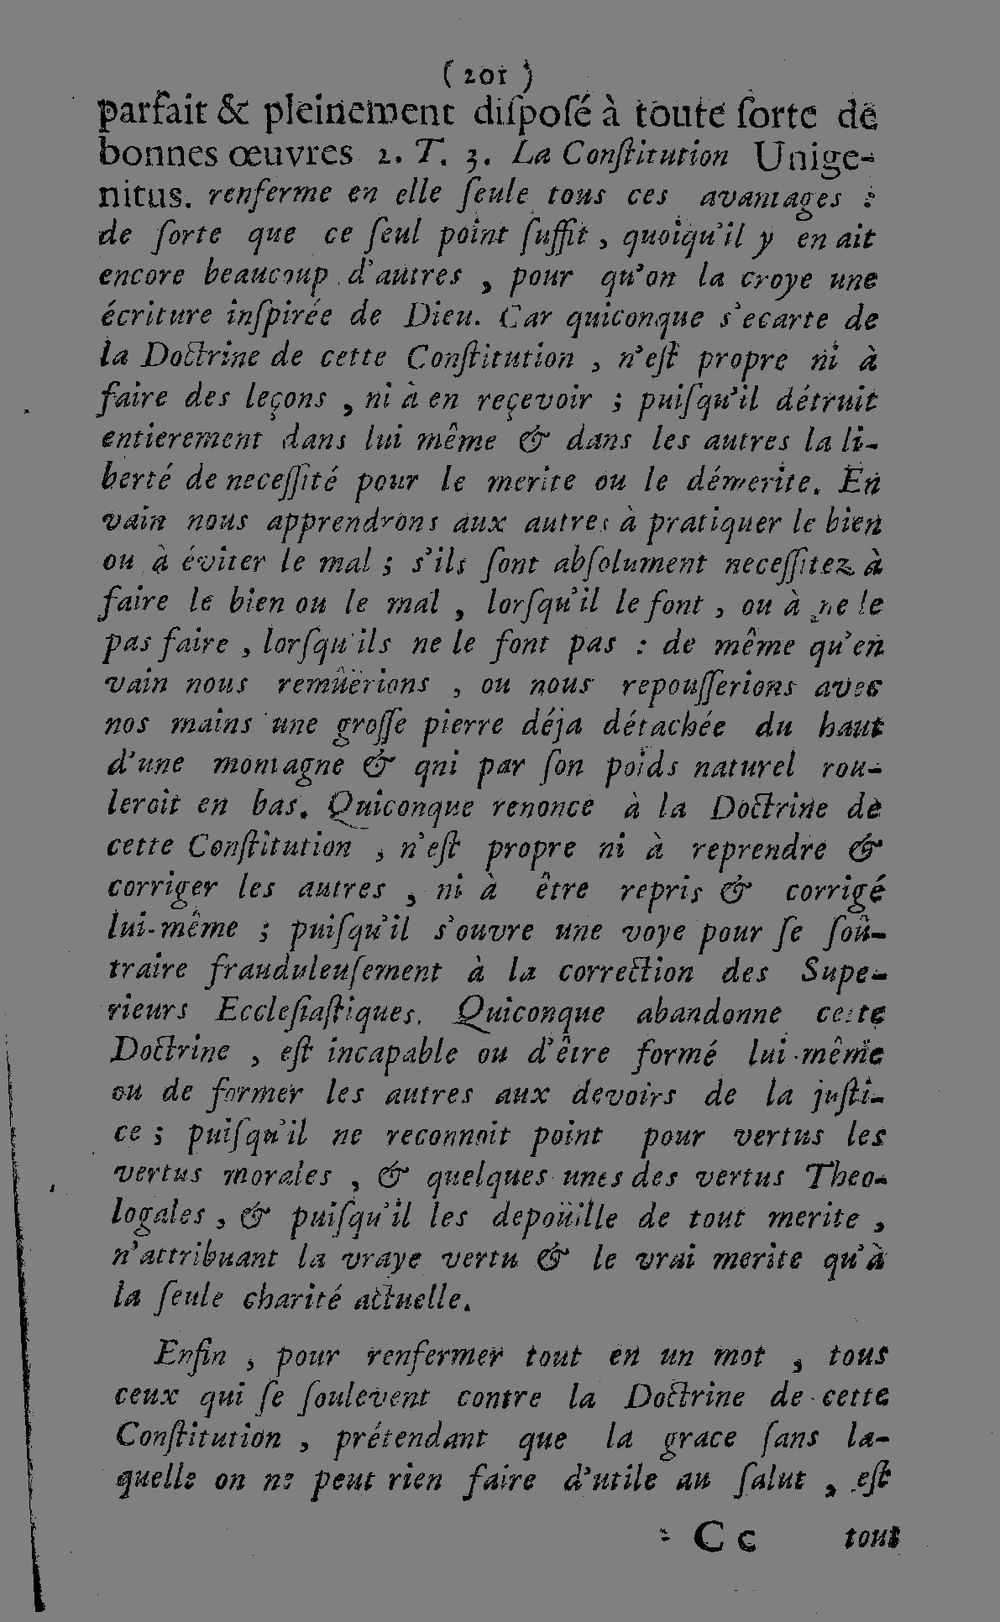 ( 201 )
parfait & pleinement diſpoſé à toute ſorte de
bonnes œuvres 2. T. 3. La Conſtitution Unige-
nitus. renferme en elle ſeule tous ces avantages :
de ſorte que ce ſeul point ſuffit, quoiqu'il y en ait
encore beaucoup d'autres, pour qu'on la croye une
écriture inſpirée de Dieu. Car quiconque s'ecarte de
la Doctrine de cette Conſtitution, n'eſt propre ni à
faire des leçons, ni à en reçevoir ; puiſqu'il détruit
entierement dans lui même & dans les autres la li-
berté de neceſſité pour le merite ou le démerite. En
vain nous apprendrons aux autres à pratiquer le bien
ou à éviter le mal ; s'ils ſont abſolument neceſſitez à
faire le bien ou le mal, lorſqu'il le font, ou à ne le
pas faire, lorſqu'ils ne le font pas : de même qu'en
vain nous remûërions, ou nous repouſſerions avec
nos mains une groſſe pierre déja détachée du haut
d'une montagne & qni par ſon poids naturel rou-
leroit en bas. Quiconque renonce à la Doctrine de
cette Conſtitution, n'eſt propre ni à reprendre &
corriger les autres, ni à être repris & corrigé
lui-même ; puiſqu'il s'ouvre une voye pour ſe ſoû-
traire frauduleuſement à la correction des Supe-
rieurs Eccleſiaſtiques. Quiconque abandonne cette
Doctrine, eſt incapable ou d'être formé lui-même
ou de former les autres aux devoirs de la juſti-
ce ; puiſqu'il ne reconnoit point pour vertus les
vertus morales, & quelques unes des vertus Theo-
logales, & puiſqu'il les depoüille de tout merite,
n'attribuant la vraye vertu & le vrai merite qu'à
la ſeule charité actuelle.
Enfin, pour renfermer tout en un mot, tous
ceux qui ſe ſoulevent contre la Doctrine de cette
Conſtitution, prétendant que la grace ſans la-
quelle on ne peut rien faire d'utile au ſalut, eſt
C c tout